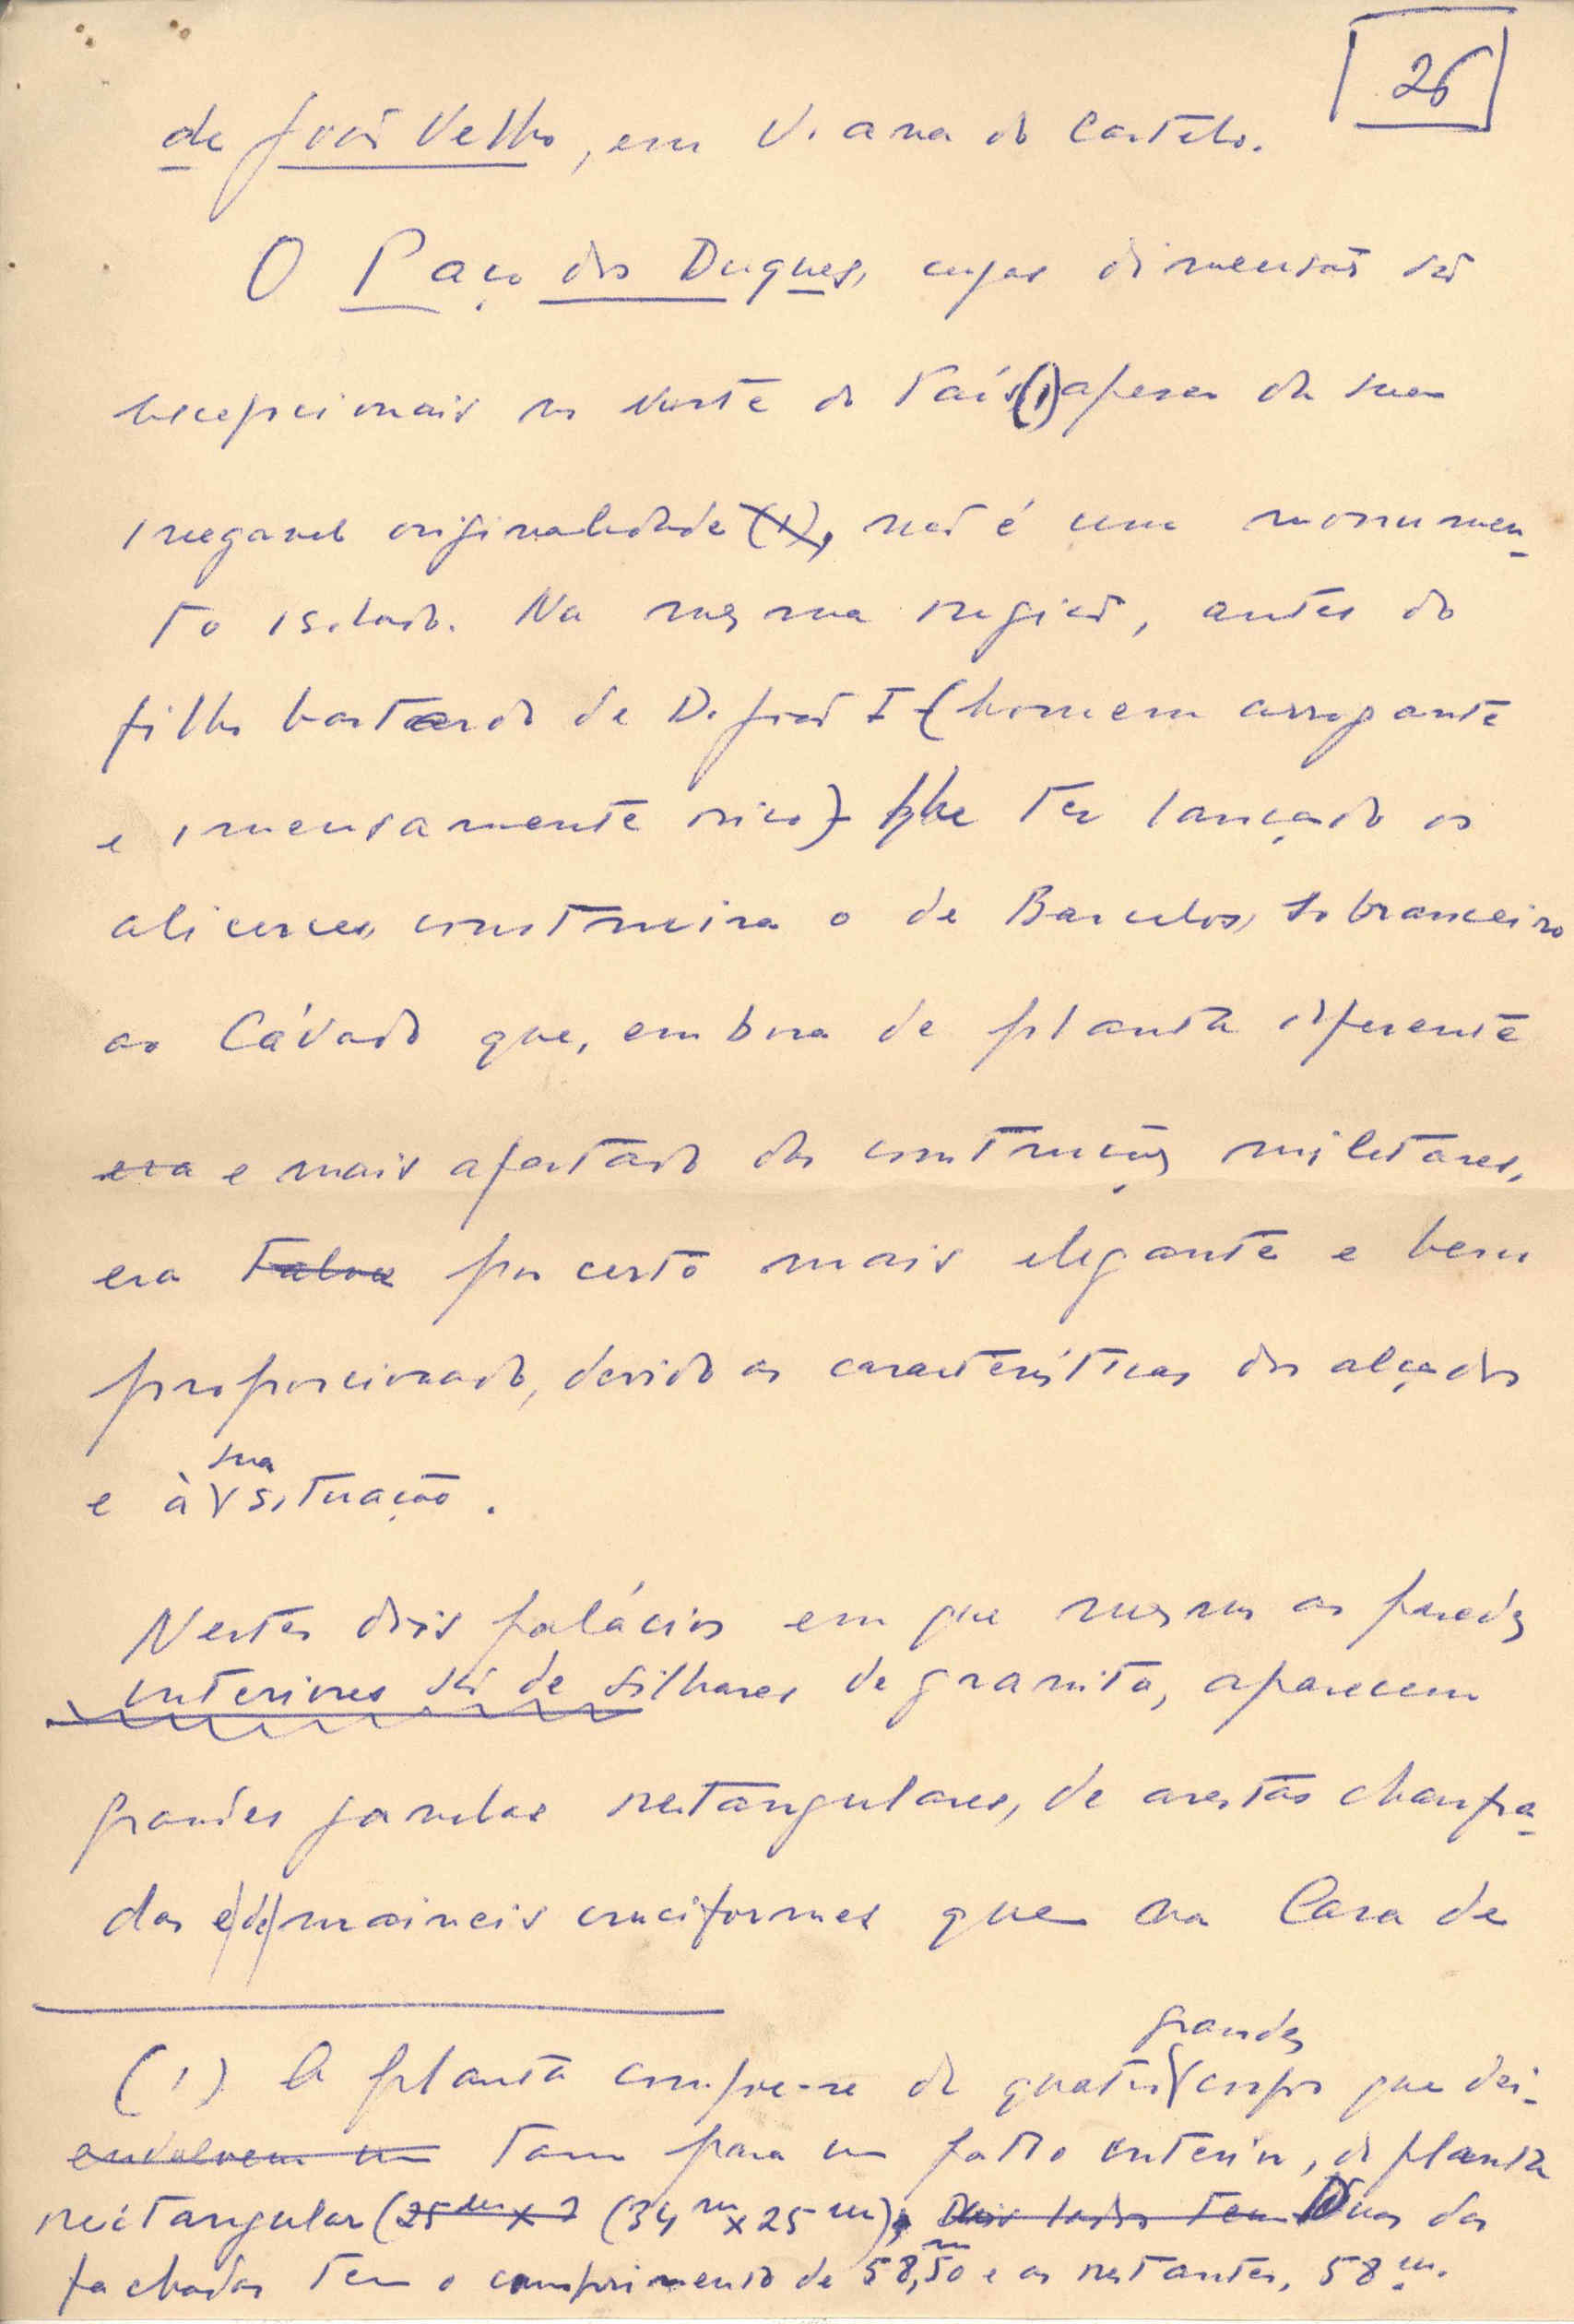 26
de João Velho, em Viana do Castelo.
O Paço dos Duques, cujas dimensões são
excepcionais no Norte do País (1) apesar da sua
inegavel originalidade (1), não é um monumen-
to isolado. Na mesma região, antes do
filho bastardo de D. João I (homem arrogante
e imensamente rico) lhe ter lançado os
alicerces, construira o de Barcelos, sobranceiro
ao Cávado que, embora de planta diferente
era e mais afastado das construções militares,
era talvez por certo mais elegante e bem
proporcionado, devido às características dos alçados
e à sua situação.
Nestes dois palácios em que mesmo as paredes
interiores são de silhares de granito, aparecem
grandes janelas rectangulares, de arestas chanfra-
das e de maineis cruciformes que na Casa de
(1) A planta compõe-se de quatro grandes corpos que dei-
envolvem um tam para um patio interior, de planta
rectangular (25m x ? (34m x 25m), Dois lados tem Duas das
fachadas tem o comprimento de 58,m50 e as restantes, 58m.